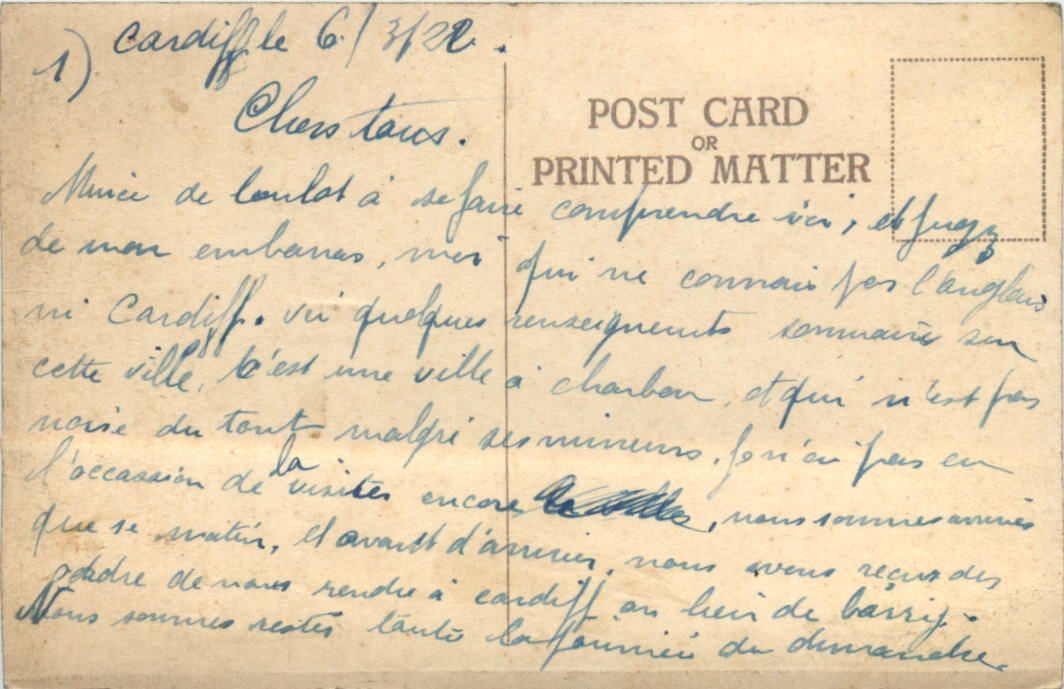 1) Cardiff le 6/3/22.
POST CARD
OR
PRINTED MATTER
Chers tous.
de loulot à se faire comprendre ici, et jugez
de mon embarras, moi qui ne connais pas l'anglais
ni Cardiff. ici quelques renseignements sommaire sur
cette ville, c'est une ville à charbon, et qui n'est pas
noire du tout malgré ses mineurs. Je n'ai pas eu
l'occasion de la visiter encore, nous sommes arrivés
que se matin, et avant d'arriver, nous avons reçus des
ordre de nous rendre à cardiff au lieu de barry.
Nous sommes restés toute la journée du dimanche.